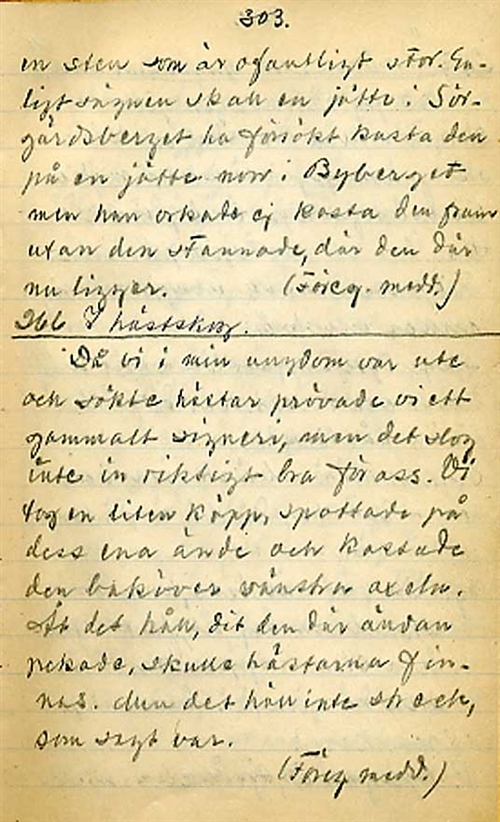 303.
en sten som är ofantligt stor. En-
ligt sägnen skall en jätte i Sör-
gärdsberget ha försökt kasta den
på en jätte norr i Byberget
men han orkade ej kasta den fram
utan den stannade, där den där
nu ligger. (Föreg. medd.)
366 I hästskog.
Då vi i min ungdom var ute
och sökte hästar prövade vi ett
gammalt signeri, men det slog
inte in riktigt bra för oss. Vi
tog en liten käpp, spottade på
dess ena ände och kastade
den baköver vänstra axeln.
Åt det håll, dit den där ändan
pekade, skulle hästarna fin-
nas. Men det höll inte streck,
som sagt var.
(Föreg medd.)